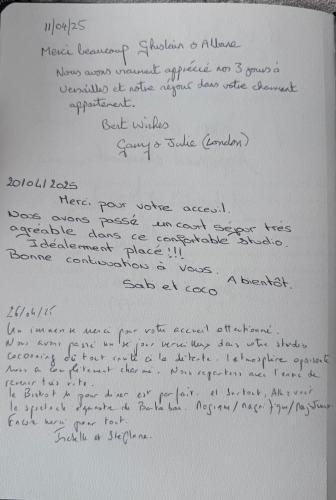 11/04/25
Merci beaucoup Ghislain & Albane
Nous avons vraiment apprécié nos 3 jours à
Versailles et notre séjour dans votre charmant
appartement.
Best Wishes
Garry & Julie (London)
20/04/2025
Merci pour votre acceuil.
Nous avons passé un court séjour très
agréable dans ce confortable studio.
Idéalement placé!!!
Bonne continuation à vous.
A bientôt.
Sab et coco
26/04/25
Un immense merci pour votre accueil attentionné.
Nous avons passé un séjour merveilleux dans votre studio
cocooning où tout invite à la détente. L'atmosphère apaisante
nous a complètement charmé. Nous repartons avec l'envie de
revenir très vite.
le Bistrot pour diner est parfait. et surtout, Allez voir
le spectacle équestre de Bartabas. Magique/magnifique/majestueux.
Encore merci pour tout.
et Stéphane.